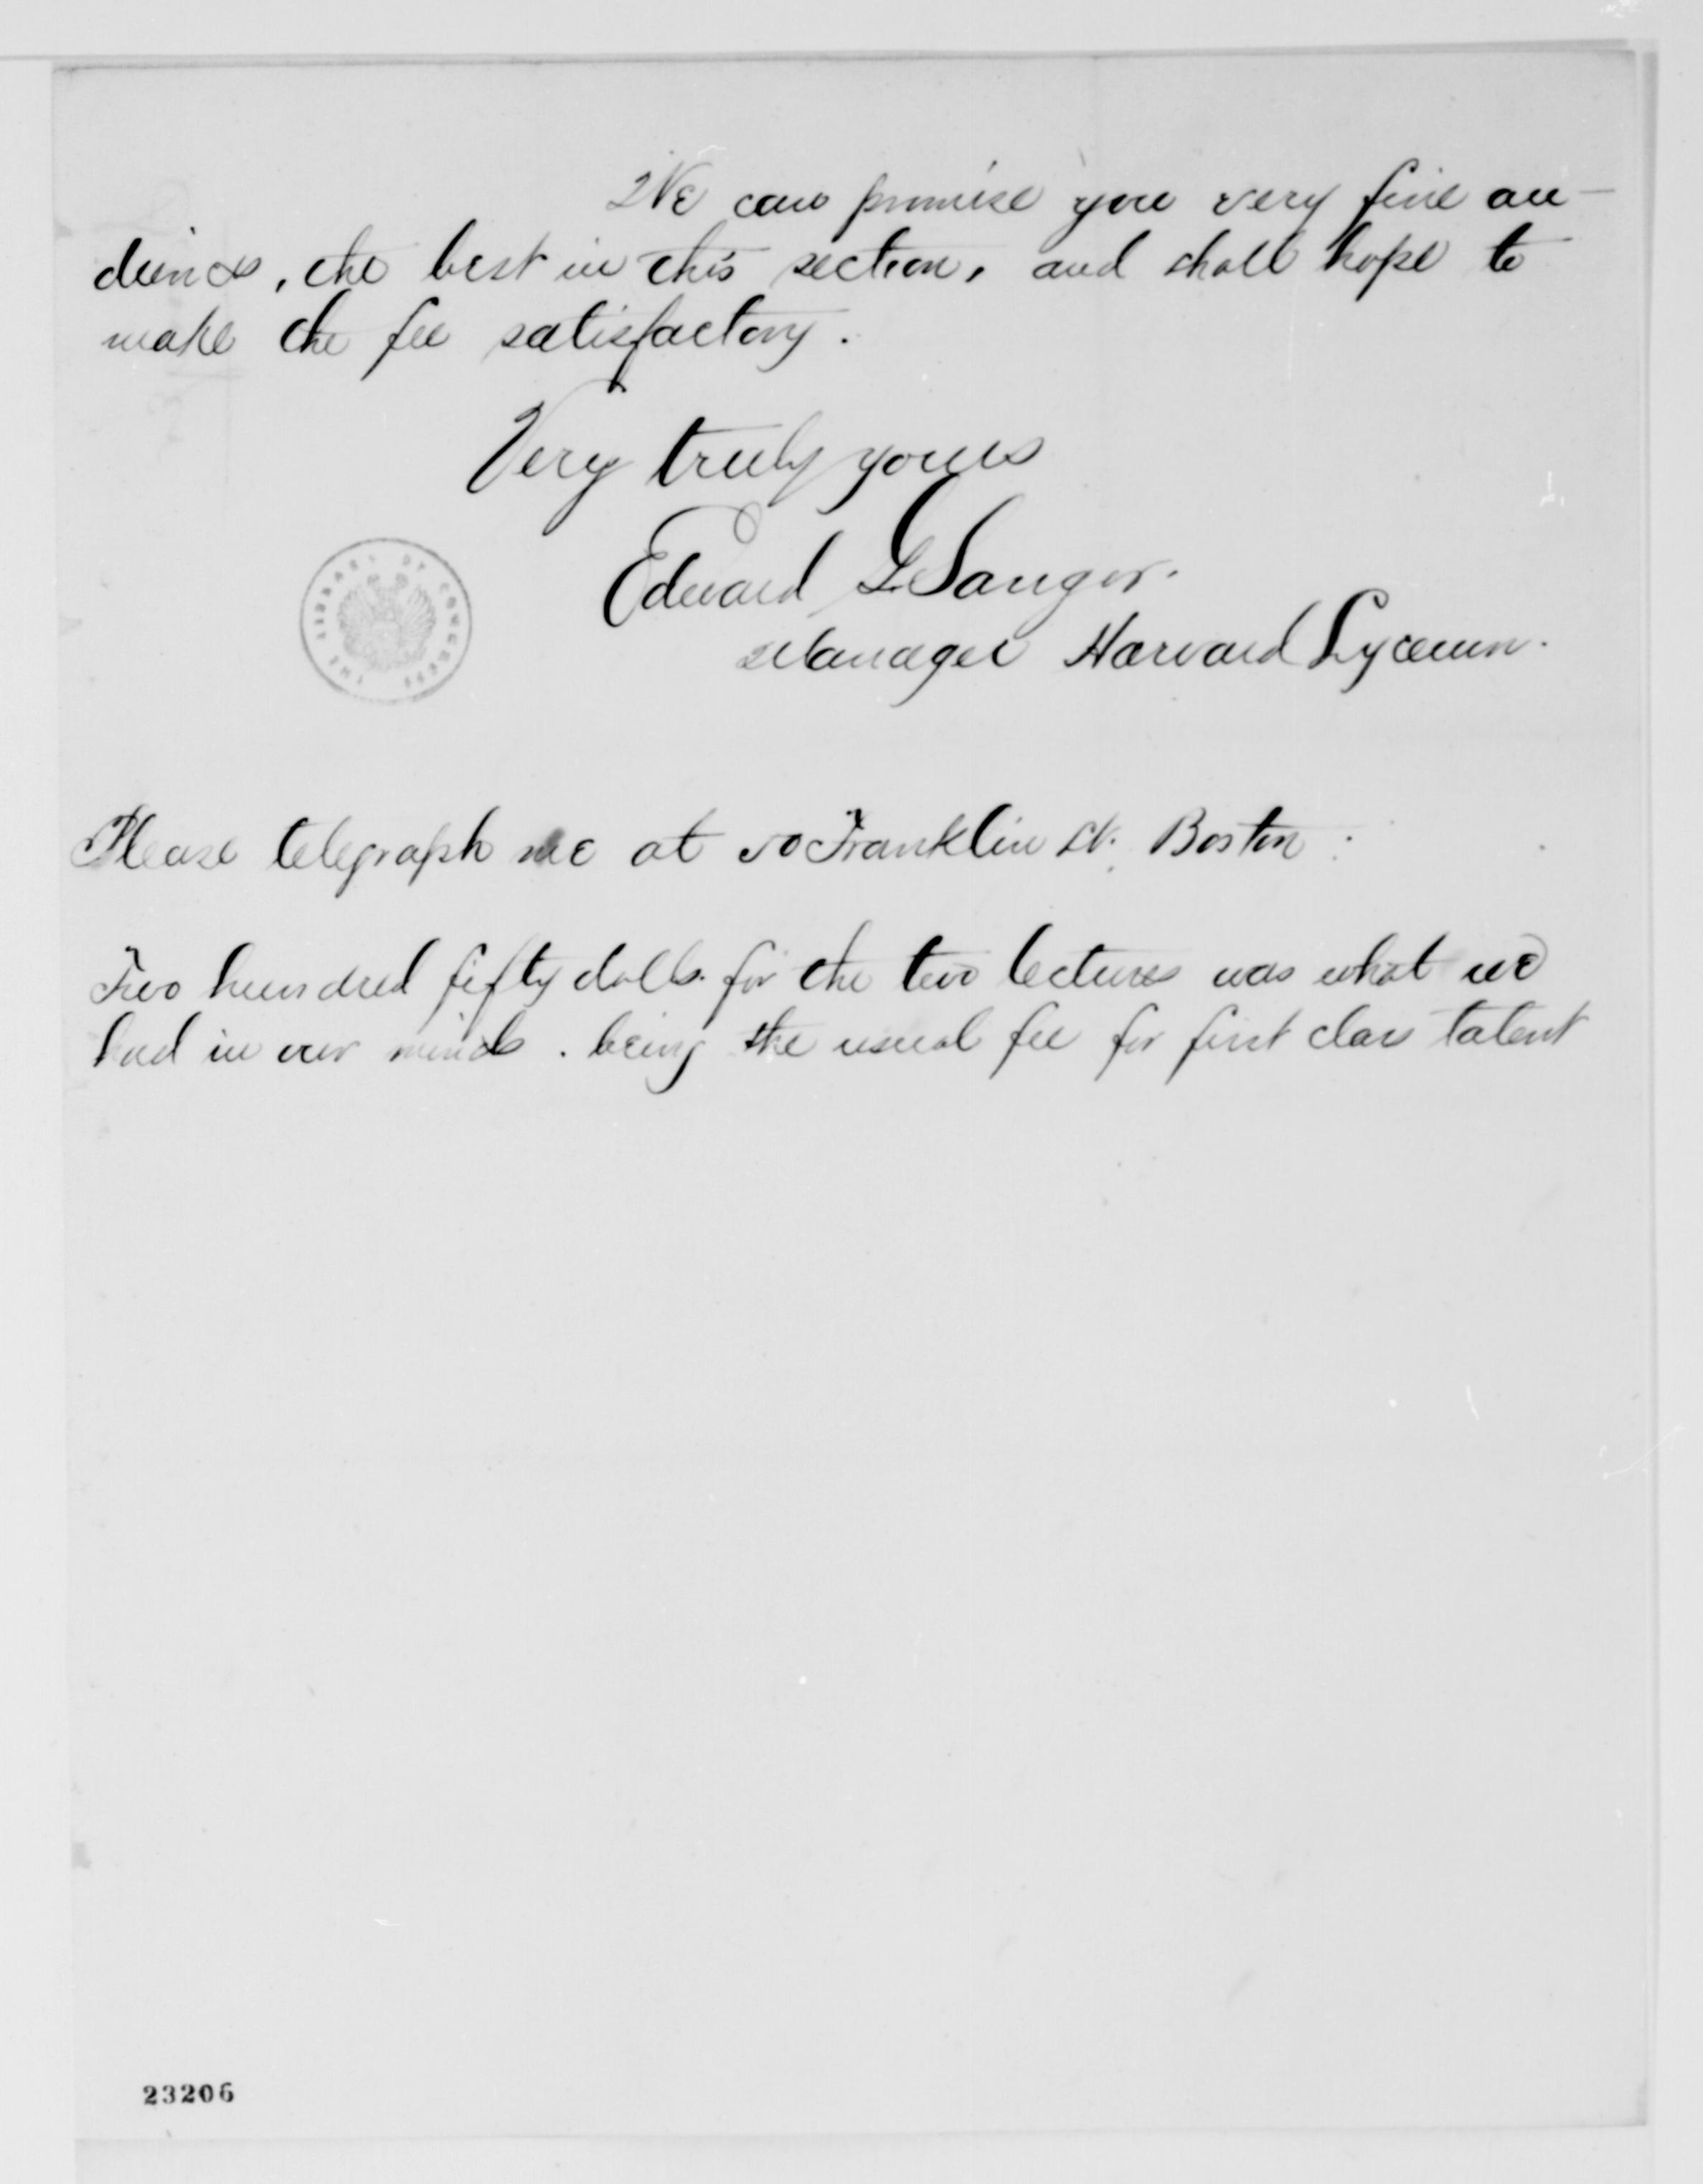 We can promise you very fine au-
diences, the best in this section, and shall hope to
make the fee satisfactory.
Very truly yours
Edward G Sanger.
Manager Harvard Lyceum.
THE LIBRARY OF CONGRESS
Please telegraph me at 50 Franklin St. Boston.
Two hundred fifty dolls. for the two lectures was what we
had in our minds. being the usual fee for first class talent
23206